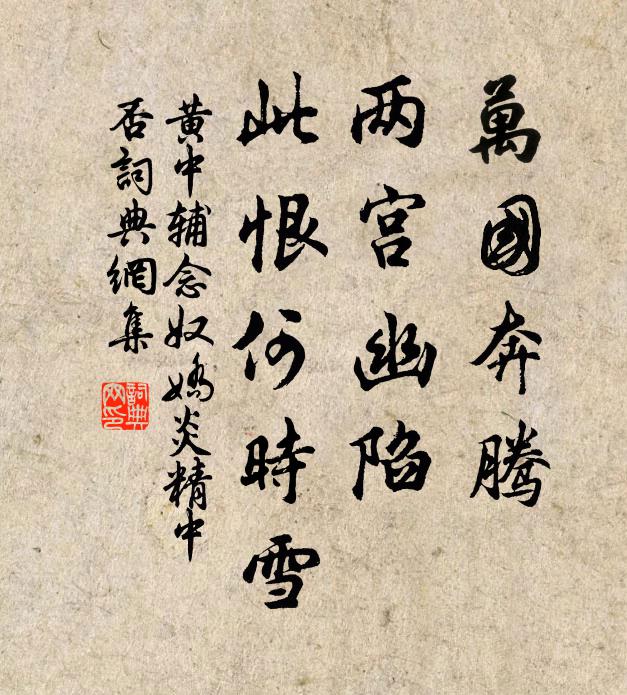 萬國奔騰
两宫幽陷
此恨何時雪
黄中辅念奴嬌炎精中
否詞典網集
詞典網印